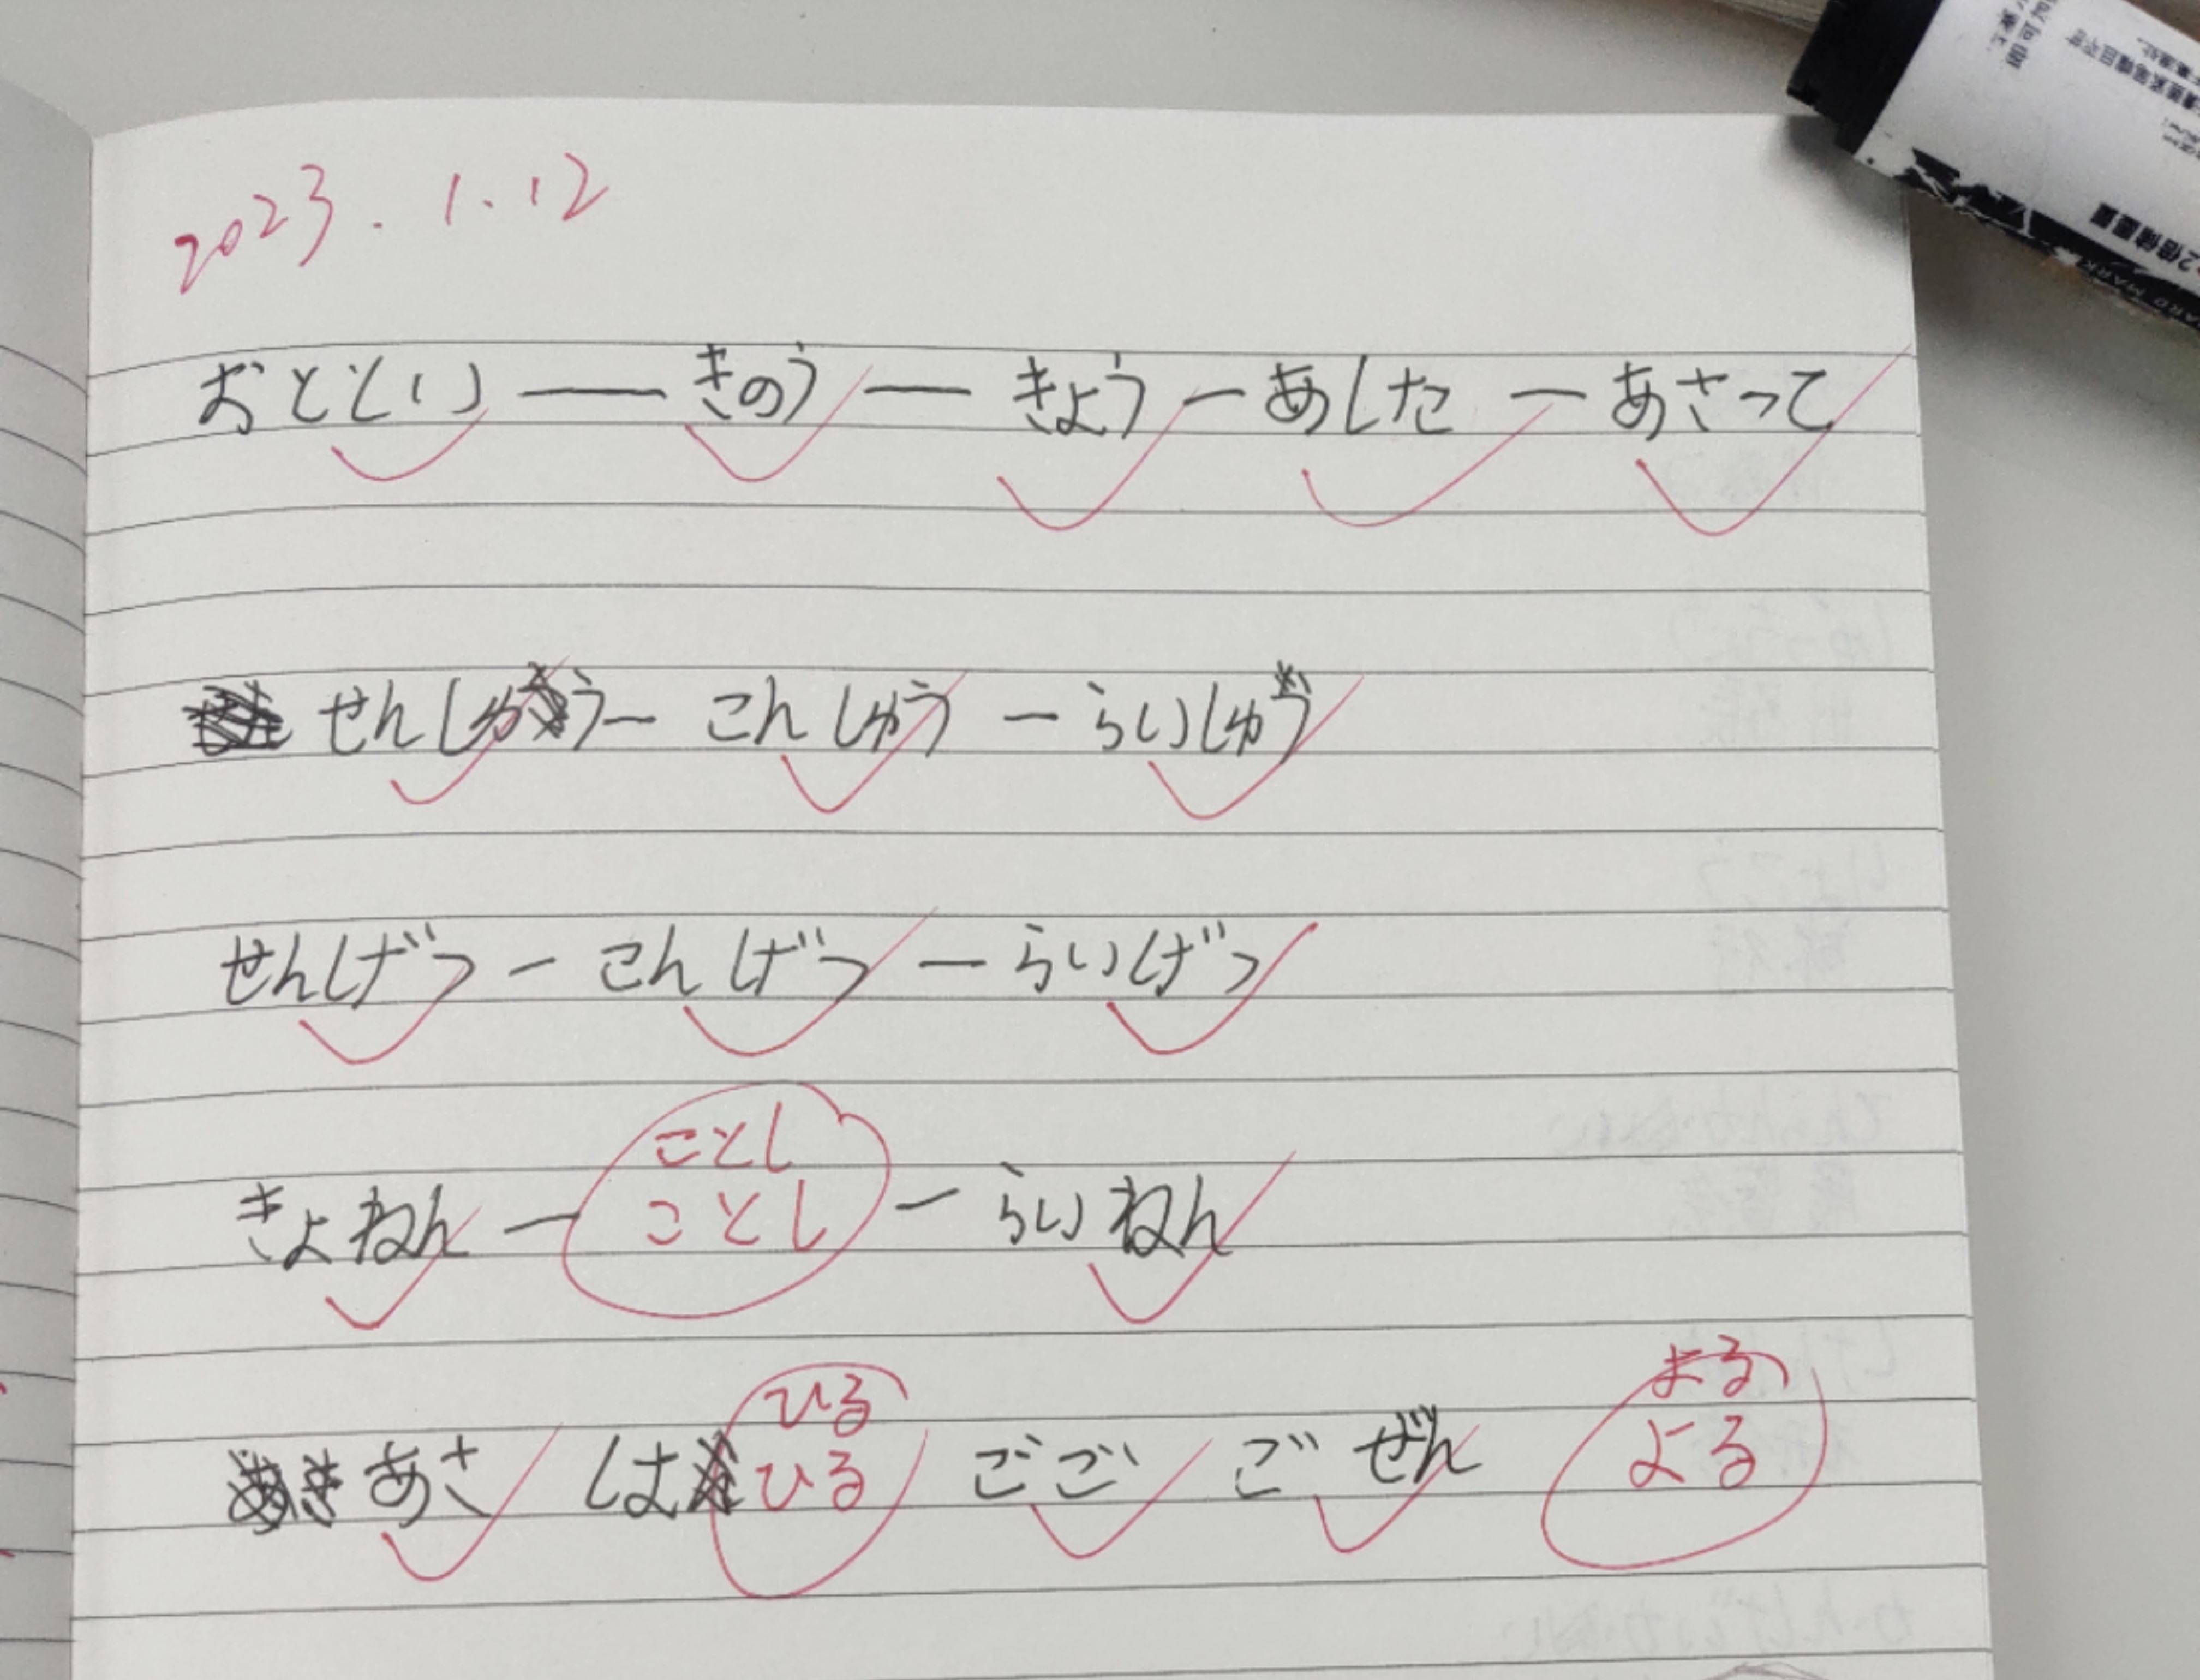 2023.1.12
おととい ― きのう ― きょう ― あした ― あさって
せんしゅう ― こんしゅう ― らいしゅう
せんげつ ― こんげつ ― らいげつ
ことし
きょねん ― ことし ― らいねん
ひる よる
あさ は ひる ごご ごぜん よる